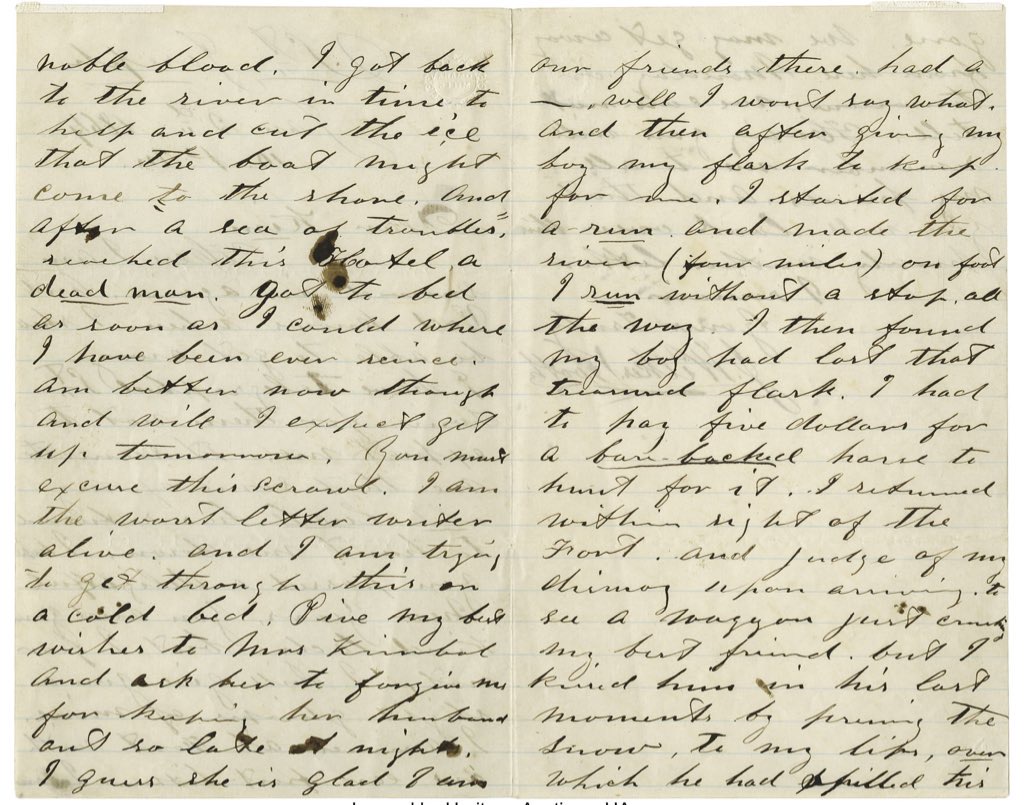 noble blood. I got back
to the river in time to
help and cut the ice
that the boat might
come to the shore. And
after a sea of troubles,
reached this Hotel a
dead man. Got to bed
as soon as I could where
I have been ever since.
am better now though
and will I expect get
up tomorrow. You must
excuse this scrawl. I am
the worst letter writer
alive. and I am trying
to get through this on
a cold bed. Give my best
wishes to Mrs Kimbal
and ask her to forgive me
for keeping her husband
out so late at night.
I guess she is glad I am
our friends there. had a
—. well I wont say what.
And then after giving my
boy my flask to keep
for me. I started for
a run and made the
river (four miles) on foot
I run without a stop. all
the way I then found
my boy had lost that
treasured flask. I had
to pay five dollars for
a bare-backed horse to
hunt for it. I returned
within sight of the
Front. and judge of my
dismay upon arriving. to
see a waggon just crushing
my best friend. but I
kissed him in his last
moments by pressing the
snow, to my lips, over
which he had spilled his